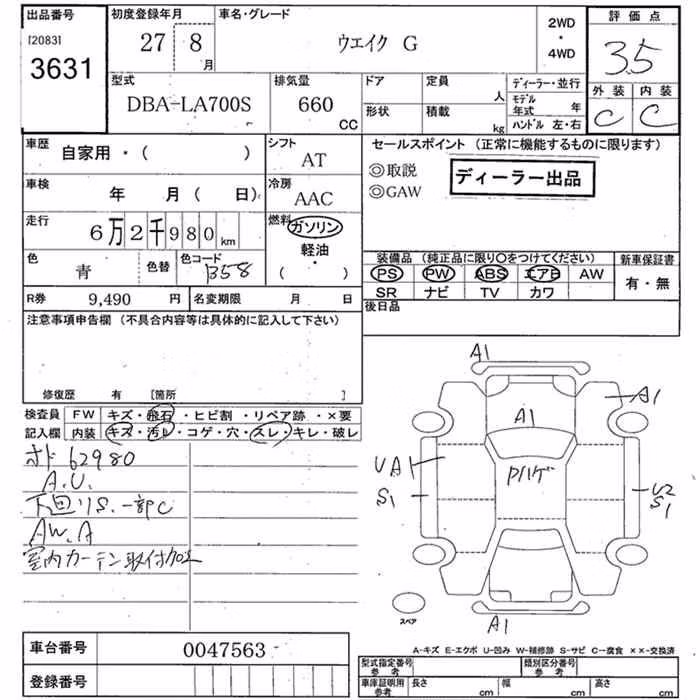 出品番号
[2083]
3631
初度登録年月
27 8
月
車名・グレード
ウエイク G
2WD
・
4WD
評価点
3.5
外装 内装
C C
型式
DBA-LA700S
排気量
660
CC
ドア
形状
定員
人
積載
kg
ディーラー・並行
モデル年式 年
ハンドル 左・右
車歴
自家用・( )
車検
年 月( 日)
走行
6万2千980km
色
青
色替
色コード
B58
シフト
AT
冷房
AAC
燃料
ガソリン
軽油・
( )
R券 9,490 円
名変期限 月 日
セールスポイント (正常に機能するものに限ります)
◎取説
◎GAW
ディーラー出品
装備品 (純正品に限り〇をつけてください)
PS PW ABS エアB AW
SR ナビ TV カワ
新車保証書
有・無
後日品
注意事項申告欄 (不具合内容等は具体的に記入して下さい)
修復歴 有 [箇所 ]
検査員 記入欄
FW キズ・飛石・ヒビ割・リペア跡・×要
内装 キズ・汚レ・コゲ・穴・スレ・キレ・破レ
オド 62980
A.U.
下回りS.一部C
AW.A
室内カーテン取付加工
A1
A1
A1
UA1
S1
Pハゲ
U2
S1
スペア
A1
A-キズ E-エクボ U-凹み W-補修跡 S-サビ C-腐食 ××-交換済
車台番号 0047563
登録番号
型式指定番号 参考
類別区分番号 参考
車庫証明用 参考
長さ cm 幅 cm 高さ cm